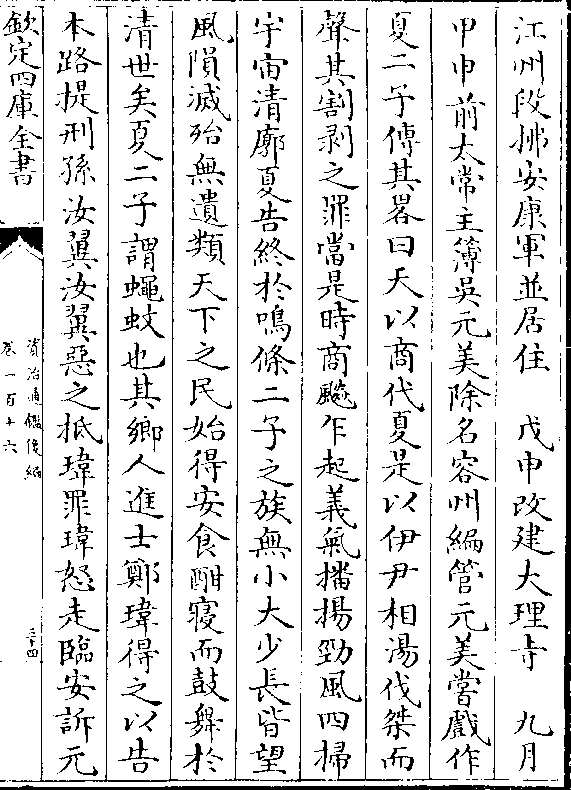 江州段拂安康軍並居住　戊申改建大理寺　九月
甲申前太常主簿吳元美除名容州編管元美嘗戲作
夏二子傳其畧曰天以商代夏是以伊尹相湯伐桀而
聲其割剥之罪當是時商飈乍起義氣播揚勁風四掃
宇宙清廓夏告終於鳴條二子之族無小大少長皆望
風隕滅殆無遺類天下之民始得安食酣寢而鼓舞於
清世矣夏二子謂蠅蚊也其鄉人進士鄭瑋得之以告
本路提刑孫汝翼汝翼惡之抵瑋罪瑋怒走臨安訴元
欽定四庫全書
資治通鑑後編
卷一百十六
三十四